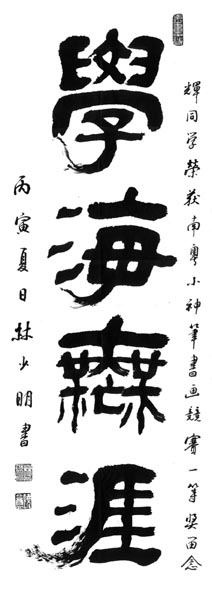 輝同学榮获南粤小神筆書画競賽一等奖留念
學海無涯
丙寅夏日林少明書